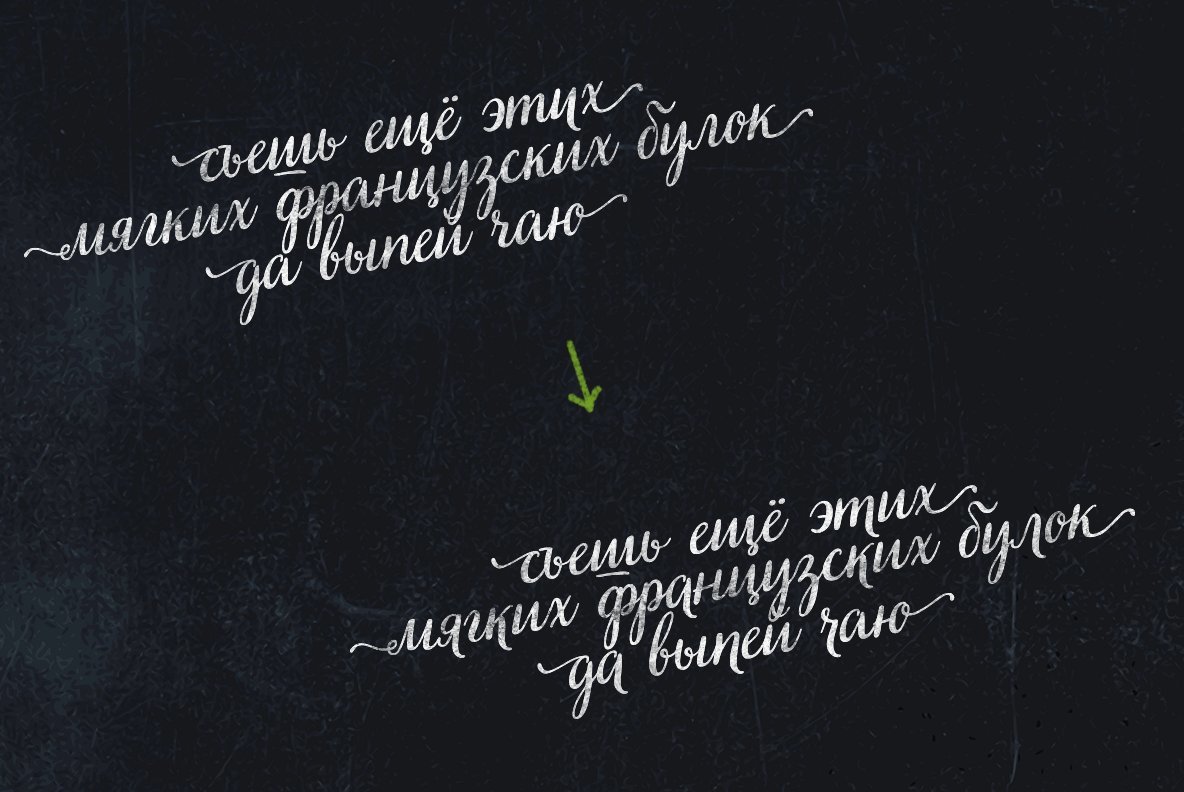 съешь ещё этих
мягких французских булок
да выпей чаю
съешь ещё этих
мягких французских булок
да выпей чаю